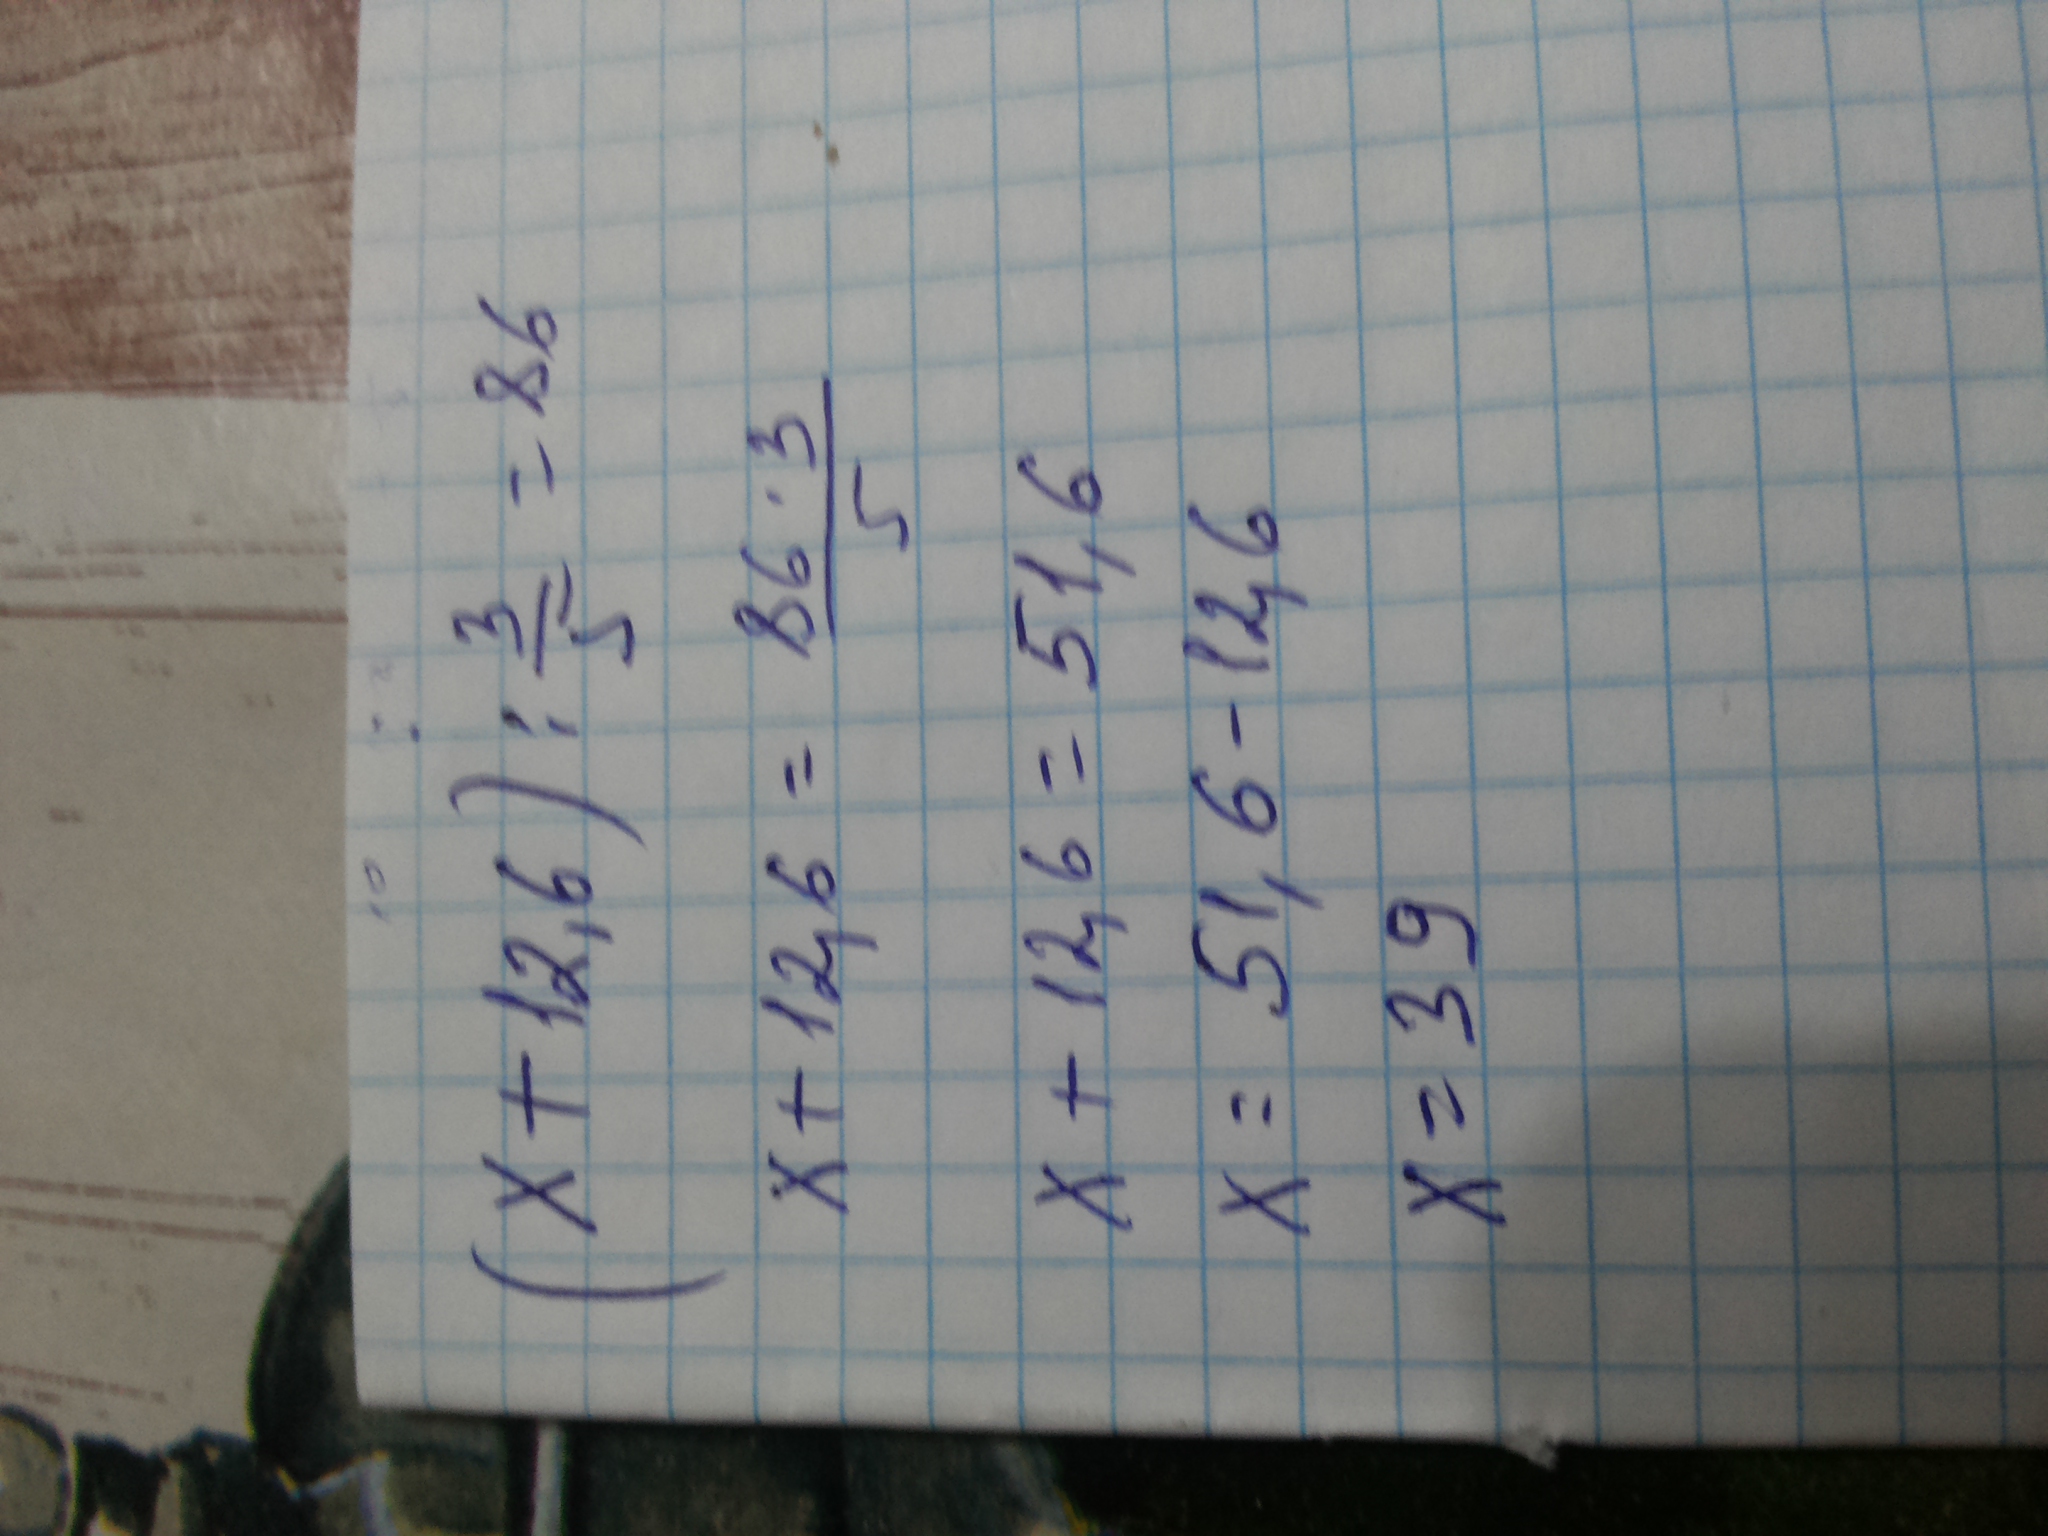 (x + 12,6) : 3/5 = 86
x + 12,6 = 86 · 3 / 5
x + 12,6 = 51,6
x = 51,6 - 12,6
x = 39